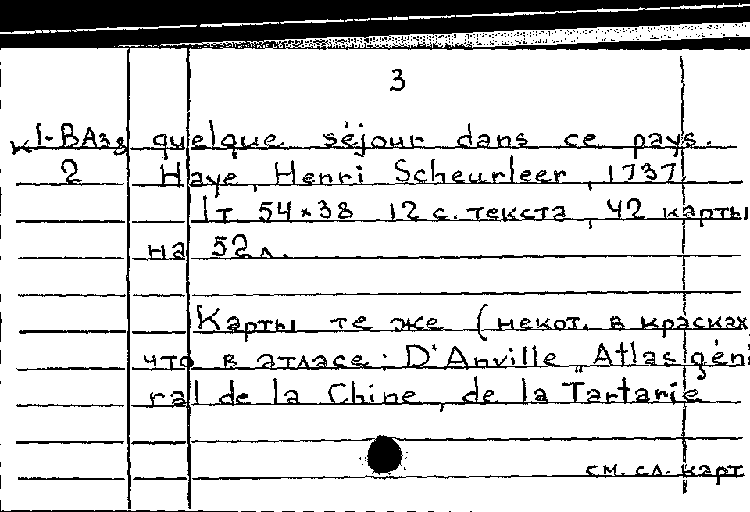 3
к I-ВАзз quelque séjour dans ce pays.
2 Haye, Henri Scheurleer, 1737
1т 54×38 12 с. текста, 42 карты
на 52 л.
Карты те же (некот. в красках,
что в атласе: D'Anville „Atlas géné
ral de la Chine, de la Tartarie
см. сл. карт